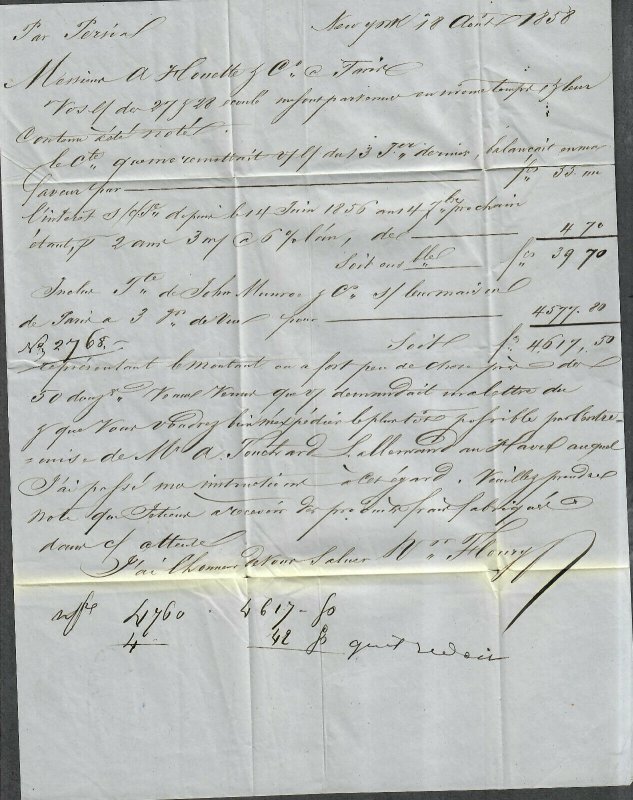 Par Persia New York 18 Août 1858
Messieurs A Houette & Co à Paris
Vos LL des 27 & 28 me sont parvenues en même temps & leur
contenu a été noté.
Le Cte que me remettait V/L du 13 dernier, balançait en ma
faveur par fcs 35. "
l'interet s/ depuis le 14 Juin 1856 au 14 7bre prochain
étant, pr 2 ans 3 m/ à 6 % l'an, de 4 70
Soit ensble fcs 39 70
Inclus Tte de John Munroe & Co s/ leur maison
de Paris à 3 Jrs de vue pour 4577. 80
No 2768. Soit fs 4617, 50
représentant le montant ou a fort peu de chose près des
50 que je demandait ma lettre du
& que vous voudrez bien m'expédier le plutôt possible par l'entre-
mise de Mr A. Touchard Lallemand au Havre auquel
J'ai passé mes instructions à cet égard. Veuillez prendre
note que je tiens à recevoir des produits frais fabriqués
dans cette attente
J'ai l'honneur de vous saluer Fleury
4760 . 4617 - 50
4 42 50 qu'il redoit